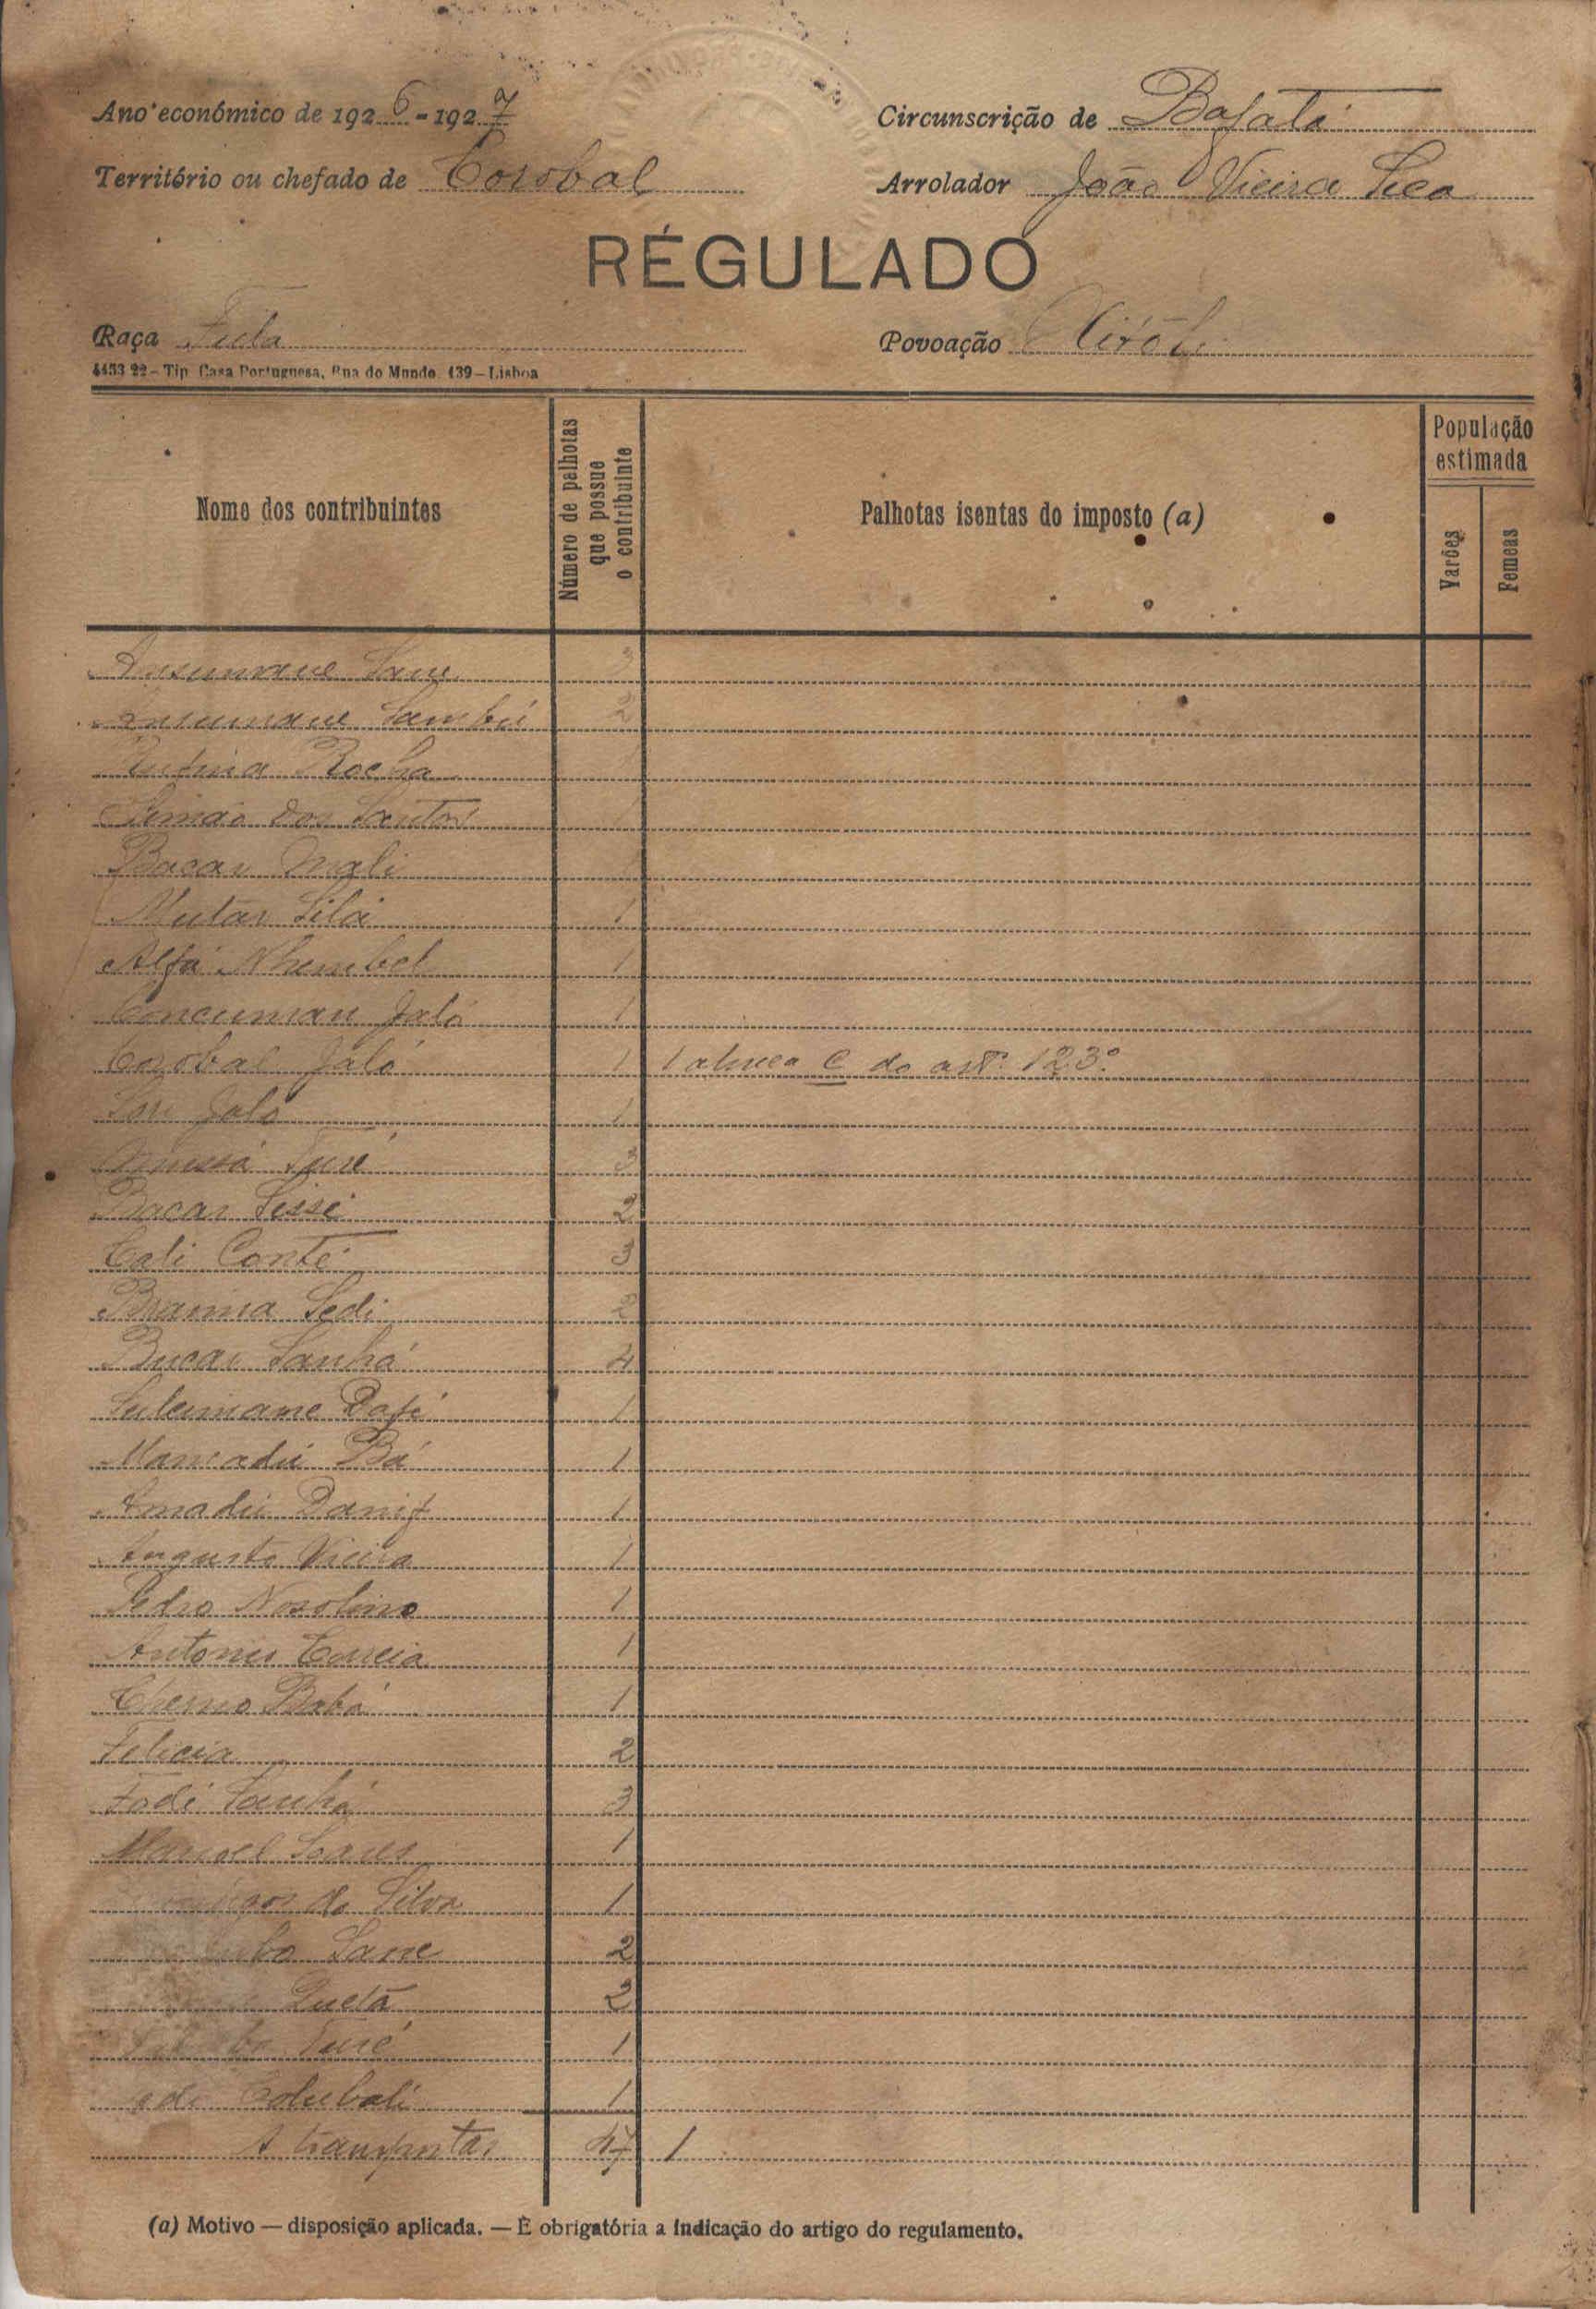 Ano económico de 1926-1927
Circunscrição de Bafatá
Território ou chefado de Corobal
Arrolador João Vieira Seca
RÉGULADO
Raça Fula
Povoação
4453 22 – Tip. Casa Portuguesa, Rua do Mundo, 139 – Lisboa
Nome dos contribuintes
Número de palhotas que possue o contribuinte
Palhotas isentas do imposto (a)
População estimada
Varões
Femeas
Ansumane Sane 3
Ansumane Sambú 2
Rocha
Simão dos Santos 1
Bacar Mali
Mutar Silá 1
Alfá Nhembel 1
Jaló 1
Corobal Jaló 1 1 alinea c do artº. 123º.
Jaló 1
Mussá Turé 3
Bacar Sissé 2
Cali Conté 3
Brama Sedi 2
Bucar Sanhá 4
Suleimane Dafé 1
Mamadú Bá 1
Amadú 1
Augusto Vieira 1
Pedro Nosolino 1
Antonio Correia 1
Cherno Babá 1
Felicia 2
Fodé Sanhá 3
Manoel Soares 1
da Silva 1
Sane 2
2
Turé 1
Colubali 1
A transportar 47 1
(a) Motivo — disposição aplicada. — É obrigatória a indicação do artigo do regulamento.